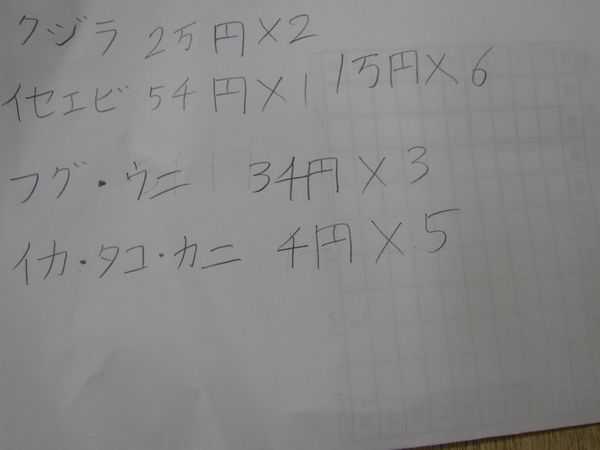 クジラ 2万円×2
イセエビ 5千円×1 1万円×6
フグ・ウニ 3千円×3
イカ・タコ・カニ 千円×5